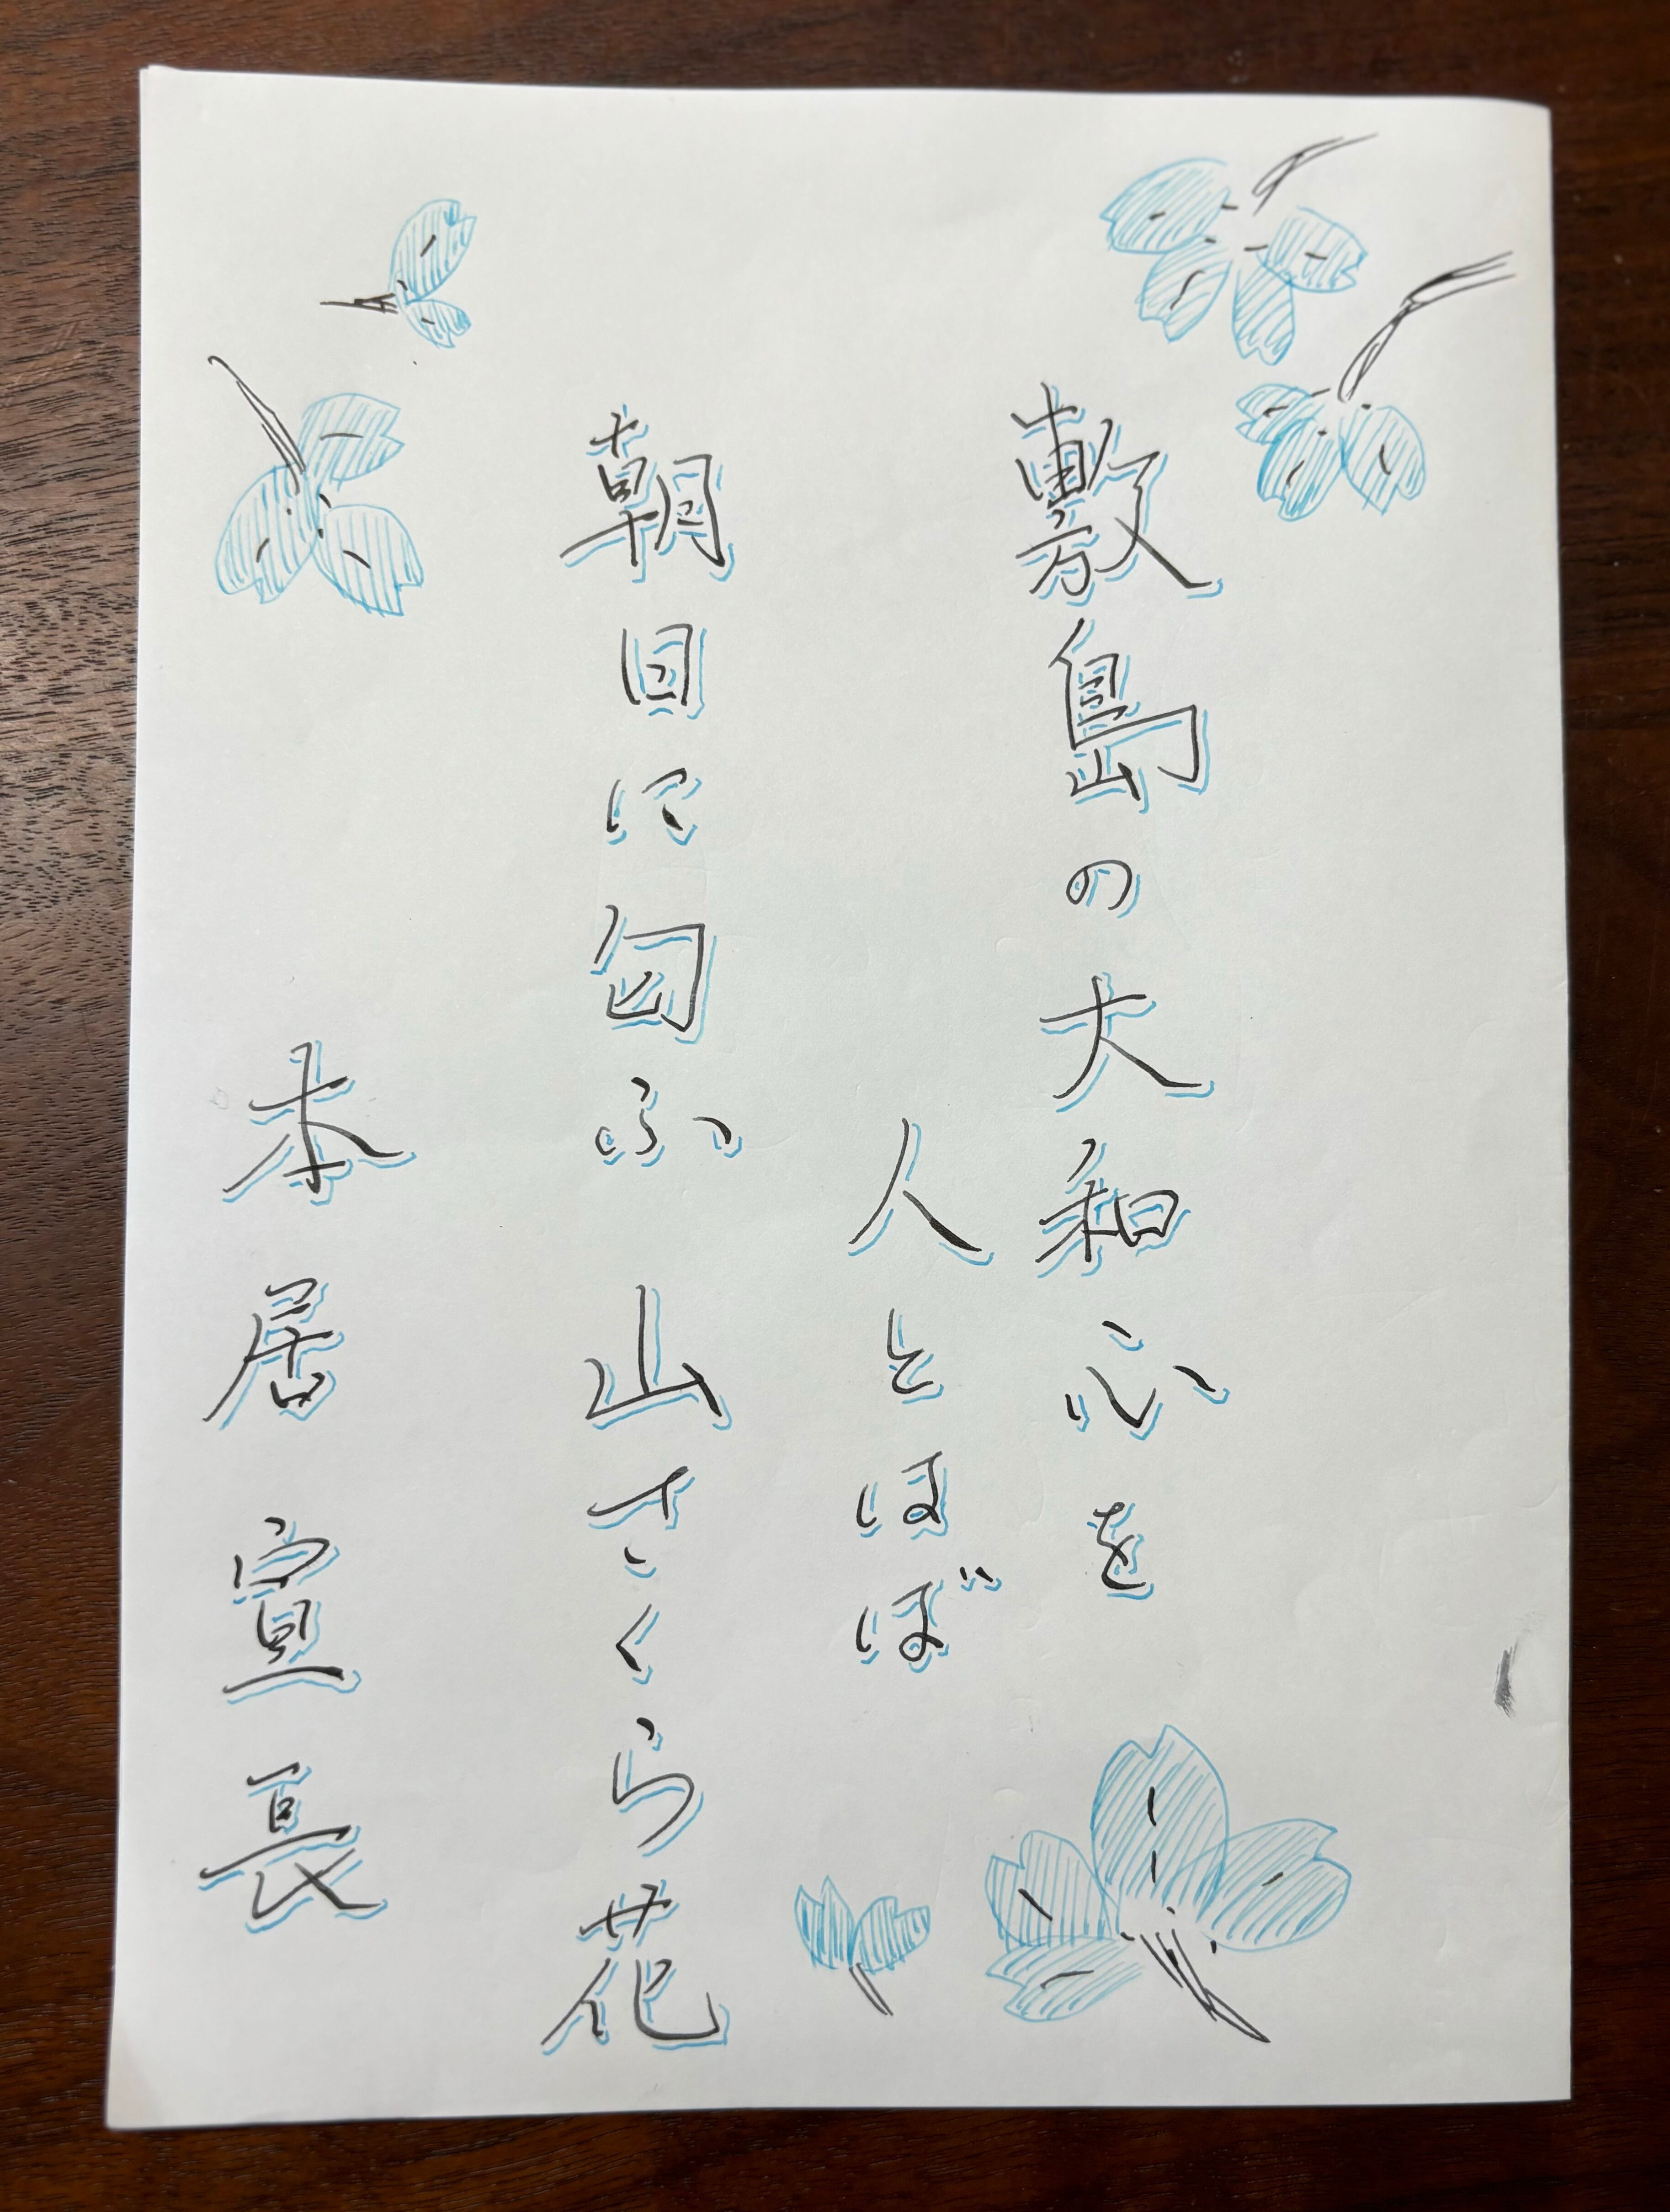 敷島の大和心を
人とほぼ
朝日に匂ふ山さくら花
本居宣長